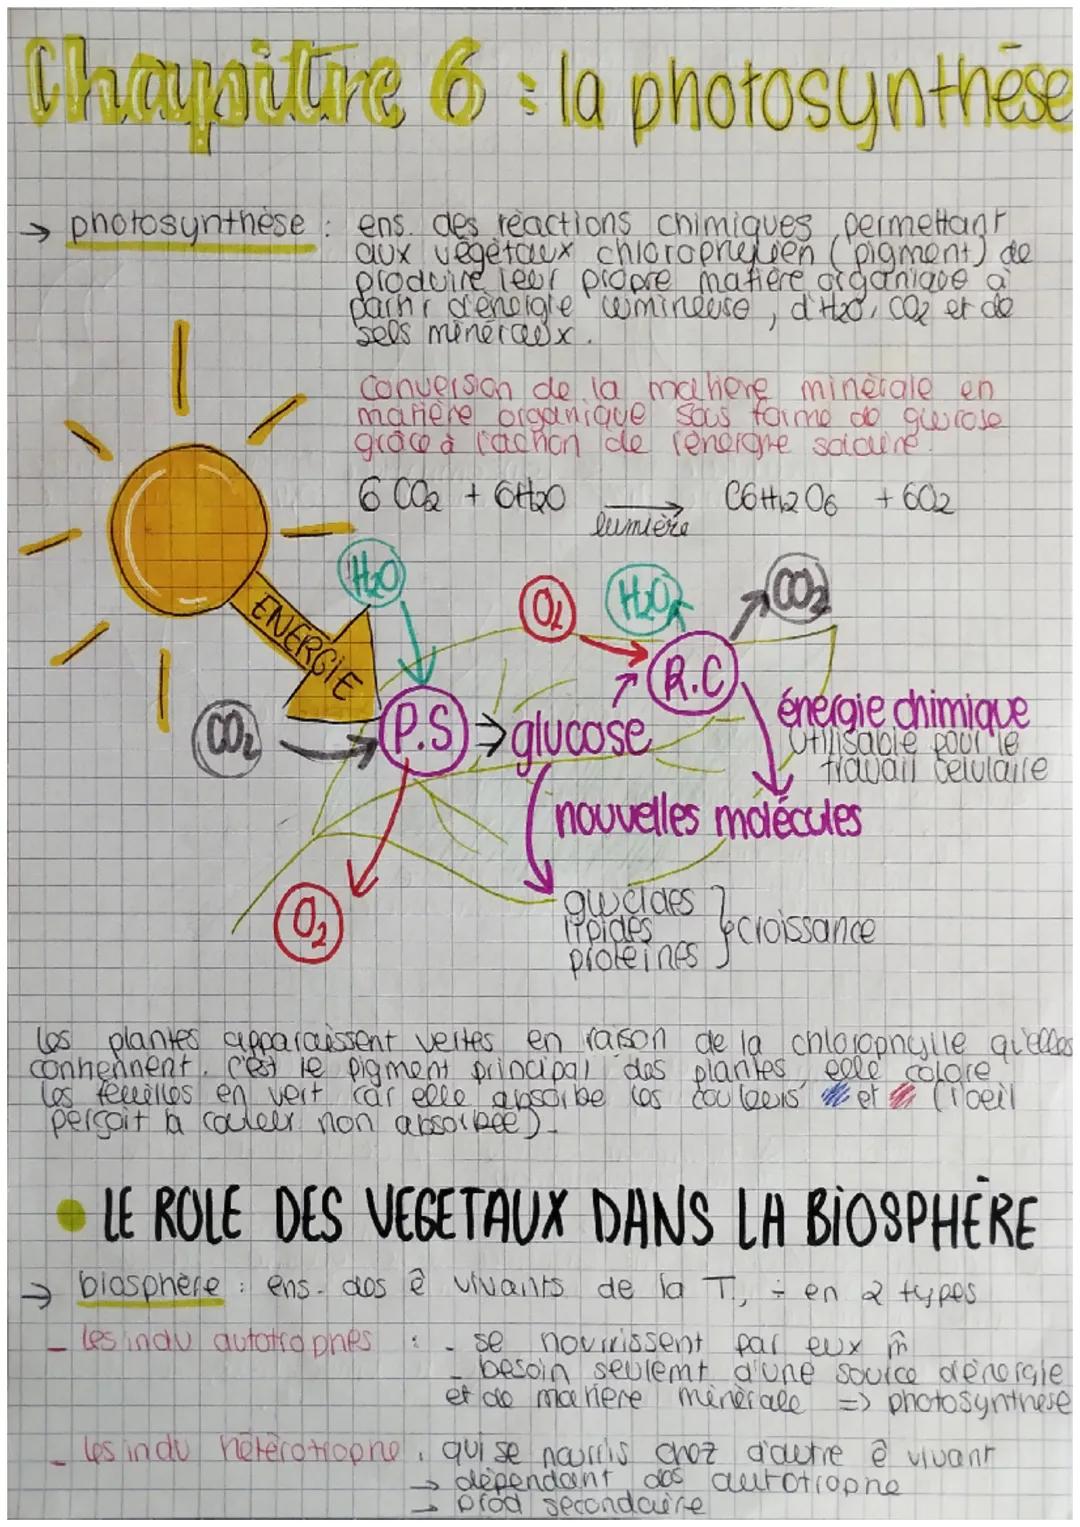 Chapitre 6 : la photosynthèse
→ photosynthèse : ens. des réactions chimiques permettant
aux végétaux chlorophylien (pigment) de
produire leur propre matière organique à
partir d'énergie lumineuse, d'H2O, CO2 et de
sels minéraux.
Conversion de la matière minérale en
matière organique sous forme de glucose
grâce à l'action de l'énergie solaire.
6 CO2 + 6H2O → C6H12O6 + 6O2
lumière
H2O
O2
H2O
CO2
ENERGIE
R.C
CO2
P.S
glucose
énergie chimique
utilisable pour le
travail celulaire
nouvelles molécules
O2
glucides
lipides
proteines
croissance
Les plantes apparaissent vertes en raison de la chlorophylle qu'elles
contiennent. C'est le pigment principal des plantes, elle colore
les feuilles en vert car elle absorbe les couleurs et (l'oeil
perçoit la couleur non absorbée).
• LE ROLE DES VEGETAUX DANS LA BIOSPHÈRE
→ biosphère : ens. des ê vivants de la T, ÷ en 2 types
- les indu autotrophes : - se nourrissent par eux m̂
- besoin seulemt d'une source d'énergie
et de matière minérale => photosynthèse
- les indu hétérotrophe : qui se nourris chez d'autre ê vivant
→ dépendant des autotrophe
→ prod secondaire